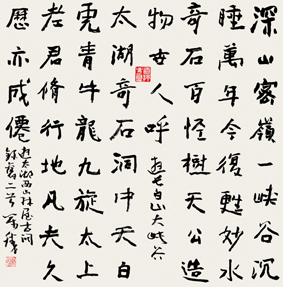 深山密嶺一峽谷沉
睡萬年今復甦妙水
奇石百怪樹天公造
物女人呼 遊長白山大峽谷
太湖奇石洞中天白
虎青牛龍九旋太上
老君脩行地凡夫久
歷亦成僊 遊太湖西山林屋古洞
錄舊二首